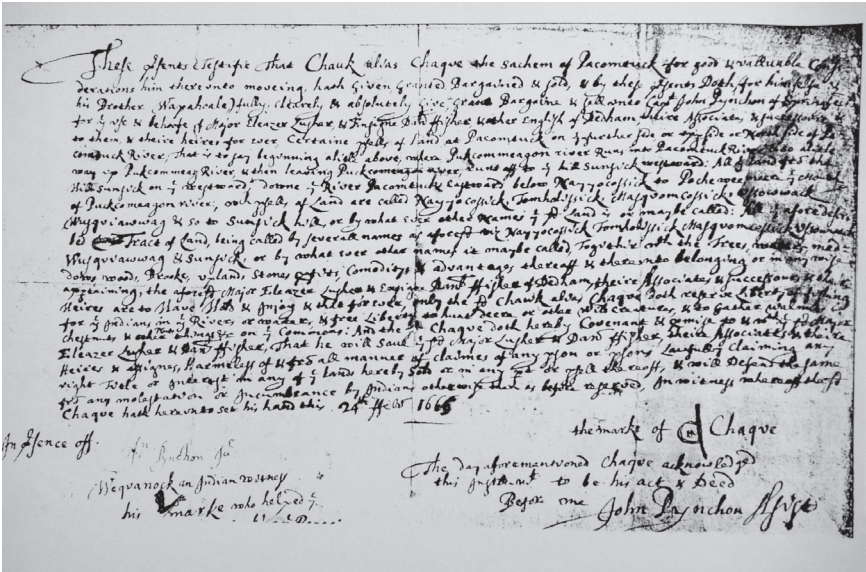 These psents Testifie that Chauk alias Chaque the sachem of Pacomtuck for good & valluable Consi
derations him thereunto moveing, hath Given Granted Bargained & sold, & by these psents Doth, for himselfe &
his Brother (Wapahoale) fully, Clearely & absolutely Give Grant Bargaine & sell unto Capt John Pynchon of Springfeild
for ye use & behoofe of Major Eleazer Lusher, & Ensigne Danll Fisher & other English of Dedham theire Associats, & successors &
to them, & theire heires for ever, Certaine psells of land at Pacomtuck on ye further side or North side of Pa
comtuck River, That is to say beginning above, where Puckcommeagon river Runs into Pacomtuck River, & so
way up Puckcommeagon River, & then leaving Puckcomeagon river, runs off to ye hill Sunsick westward: All ye Land fro the
Hill Sunsick on ye westward, downe ye River Pacomtuck Eastward below Nayyocossick to Pochewee neere ye mouth
of Puckcomeagon river, wch psells of Land are called Nayyocossick, Tomholissick, Masquomcossick, Ussowwack
Wusquiawwag & so to Sunsick hill, or by what ever other Names ye sd Land is or maybe called: All ye afore descri
bed Tract of Land, being called by severall names as aforesd viz Nayyocossick Tomholissick Masquomcossick Ussowwack
Wusquiawwag & Sunsick, or by what ever other names it maybe called, Together wth the Trees, waters, mea
dows woods, Brooke, uplands Stones & comoditys & advantages thereoff & thereunto belonging or in any wise
apptaining, the aforesd Major Eleazer Lusher & Ensigne Danll Fisher of Dedham, theire Associates & successours & their
Heires are to Have Hold & Injoy & that for ever, only the sd Chauk alias Chaque doth reserve Liberty of fishing
for ye Indians in ye Rivers or waters, & free Liberty to hunt deere or other wild creatures, & to Gather walnuts
chestnuts & other nuts things &c on ye Commons: And the sd Chaque doth hereby Covenant & pmise to & wth ye sd Major
Eleazer Lusher & Danll Fisher, That he will Save ye sd Major Lusher & Danll Fisher, theire Associates & theire
Heires & assignes, Harmeless of & fro all manner of claimes of any pson or psons Lawfully Claiming any
right Title or Interest in any of ye lands hereby Sold or in any pt or psell thereoff, & will Defend the same
fro any molestation or Incumbrance by Indians otherwise than as before reserved, In witness whereof the sd
Chaque hath hereunto set his hand this 24th Febr 1666
the marke of Chaque
In psence off.
Jn Pynchon Jur
Wequanock an Indian
his marke who helped ye
The day aforementioned Chaque acknowledged
this Instrumt to be his act & Deed
Before me John Pynchon Assist